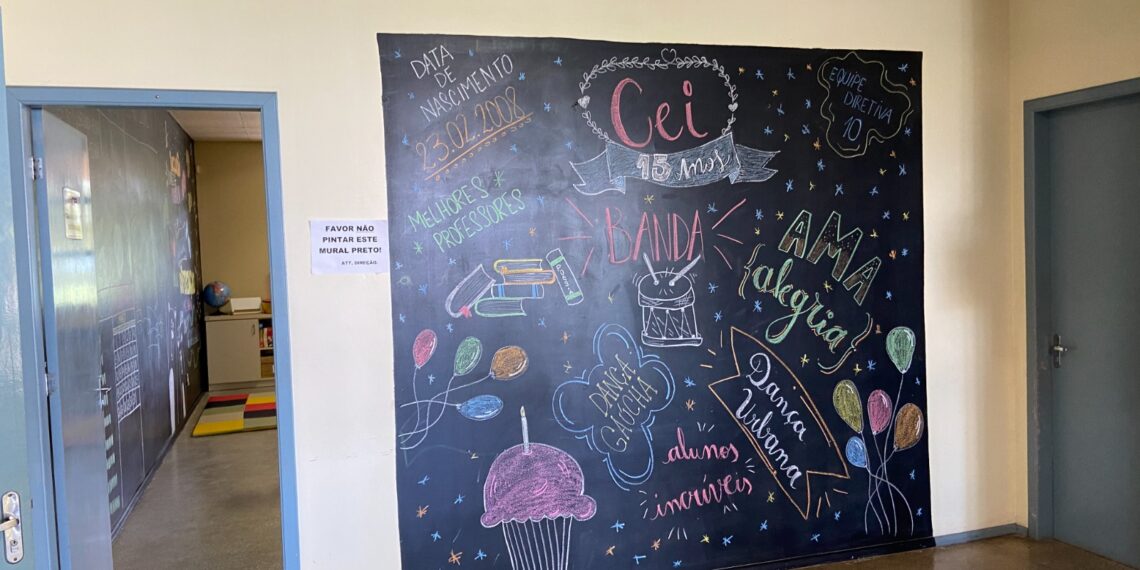 DATA
DE
NASCIMENTO
23.02.2008
Cei
15 Anos
EQUIPE
DIRETIVA
10
MELHORES
PROFESSORES
FAVOR NÃO
PINTAR ESTE
MURAL PRETO!
ATT, DIREÇÃO.
BANDA
AMA
alegria
DANÇA
GAÚCHA
Dança
Urbana
alunos
incríveis